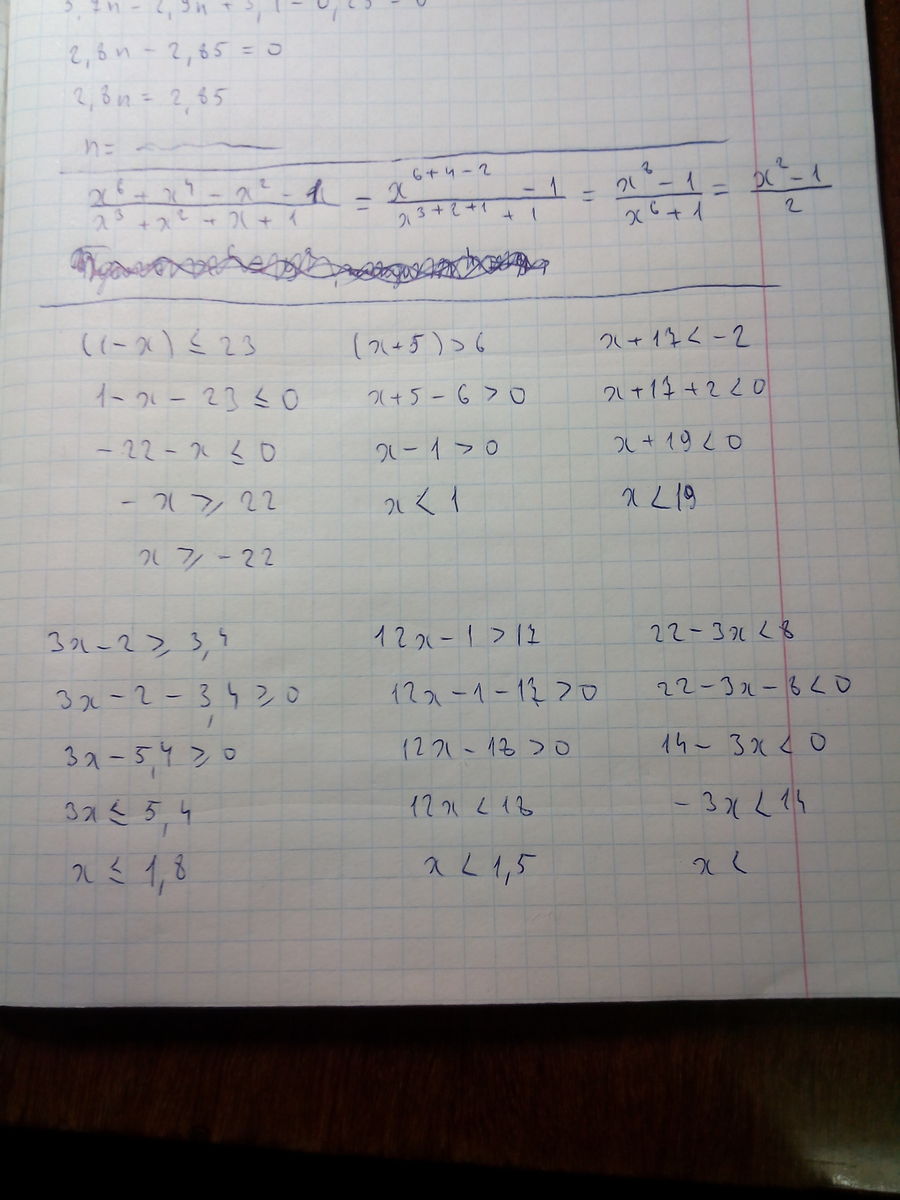 2,8n - 2,85 = 0
2,8n = 2,85
n =
x⁶ + x⁴ - x² - 1 / x³ + x² + x + 1 = x⁶⁺⁴⁻² - 1 / x³⁺²⁺¹ + 1 = x⁸ - 1 / x⁶ + 1 = x² - 1 / 2
(1-x) ≤ 23
1 - x - 23 ≤ 0
-22 - x ≤ 0
-x ⩾ 22
x ⩾ -22
(x+5) > 6
x+5 - 6 > 0
x - 1 > 0
x < 1
x + 17 < -2
x + 17 + 2 < 0
x + 19 < 0
x < 19
3x - 2 ⩾ 3,4
3x - 2 - 3,4 ⩾ 0
3x - 5,4 ⩾ 0
3x ≤ 5,4
x ≤ 1,8
12x - 1 > 17
12x - 1 - 17 > 0
12x - 18 > 0
12x < 18
x < 1,5
22 - 3x < 8
22 - 3x - 8 < 0
14 - 3x < 0
-3x < 14
x <